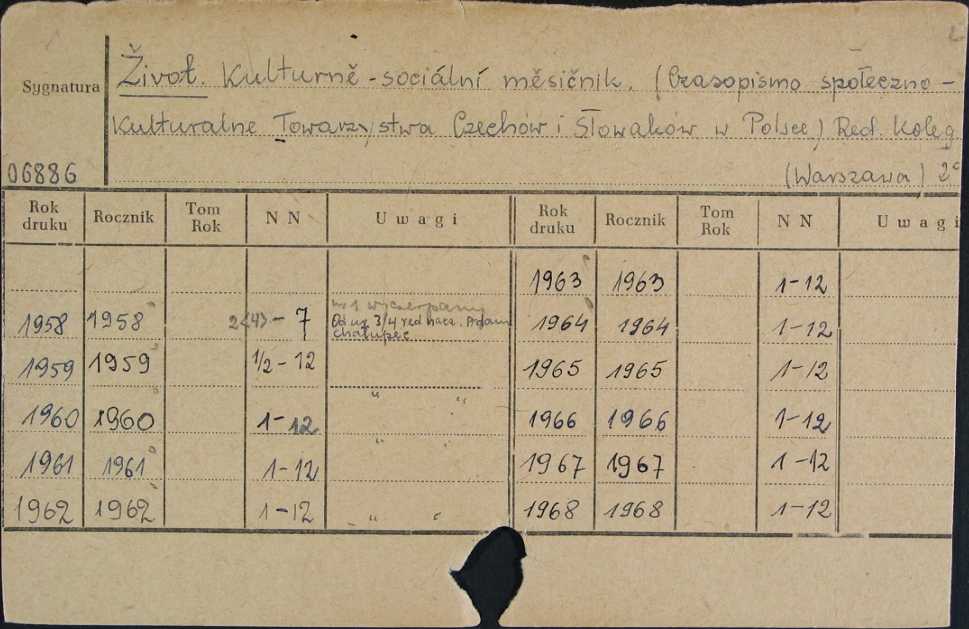 Sygnatura
Život. Kulturně-sociální měsičnik. (Czasopismo społeczno-
Kulturalne Towarzystwa Czechów i Słowaków w Polsce) Red. Koleg
06886
(Warszawa) 2°
Rok druku Rocznik Tom Rok NN Uwagi Rok druku Rocznik Tom Rok NN Uwagi
1963 1963 1-12
nr 1 wyczerpany
1958 1958 2<4>-7 Od nr 3/4 red nacz. Adam 1964 1964 1-12
Chalupec
1959 1959 1/2-12 1965 1965 1-12
" "
1960 1960 1-12 1966 1966 1-12
" "
1961 1961 1-12 1967 1967 1-12
1962 1962 1-12 " " 1968 1968 1-12